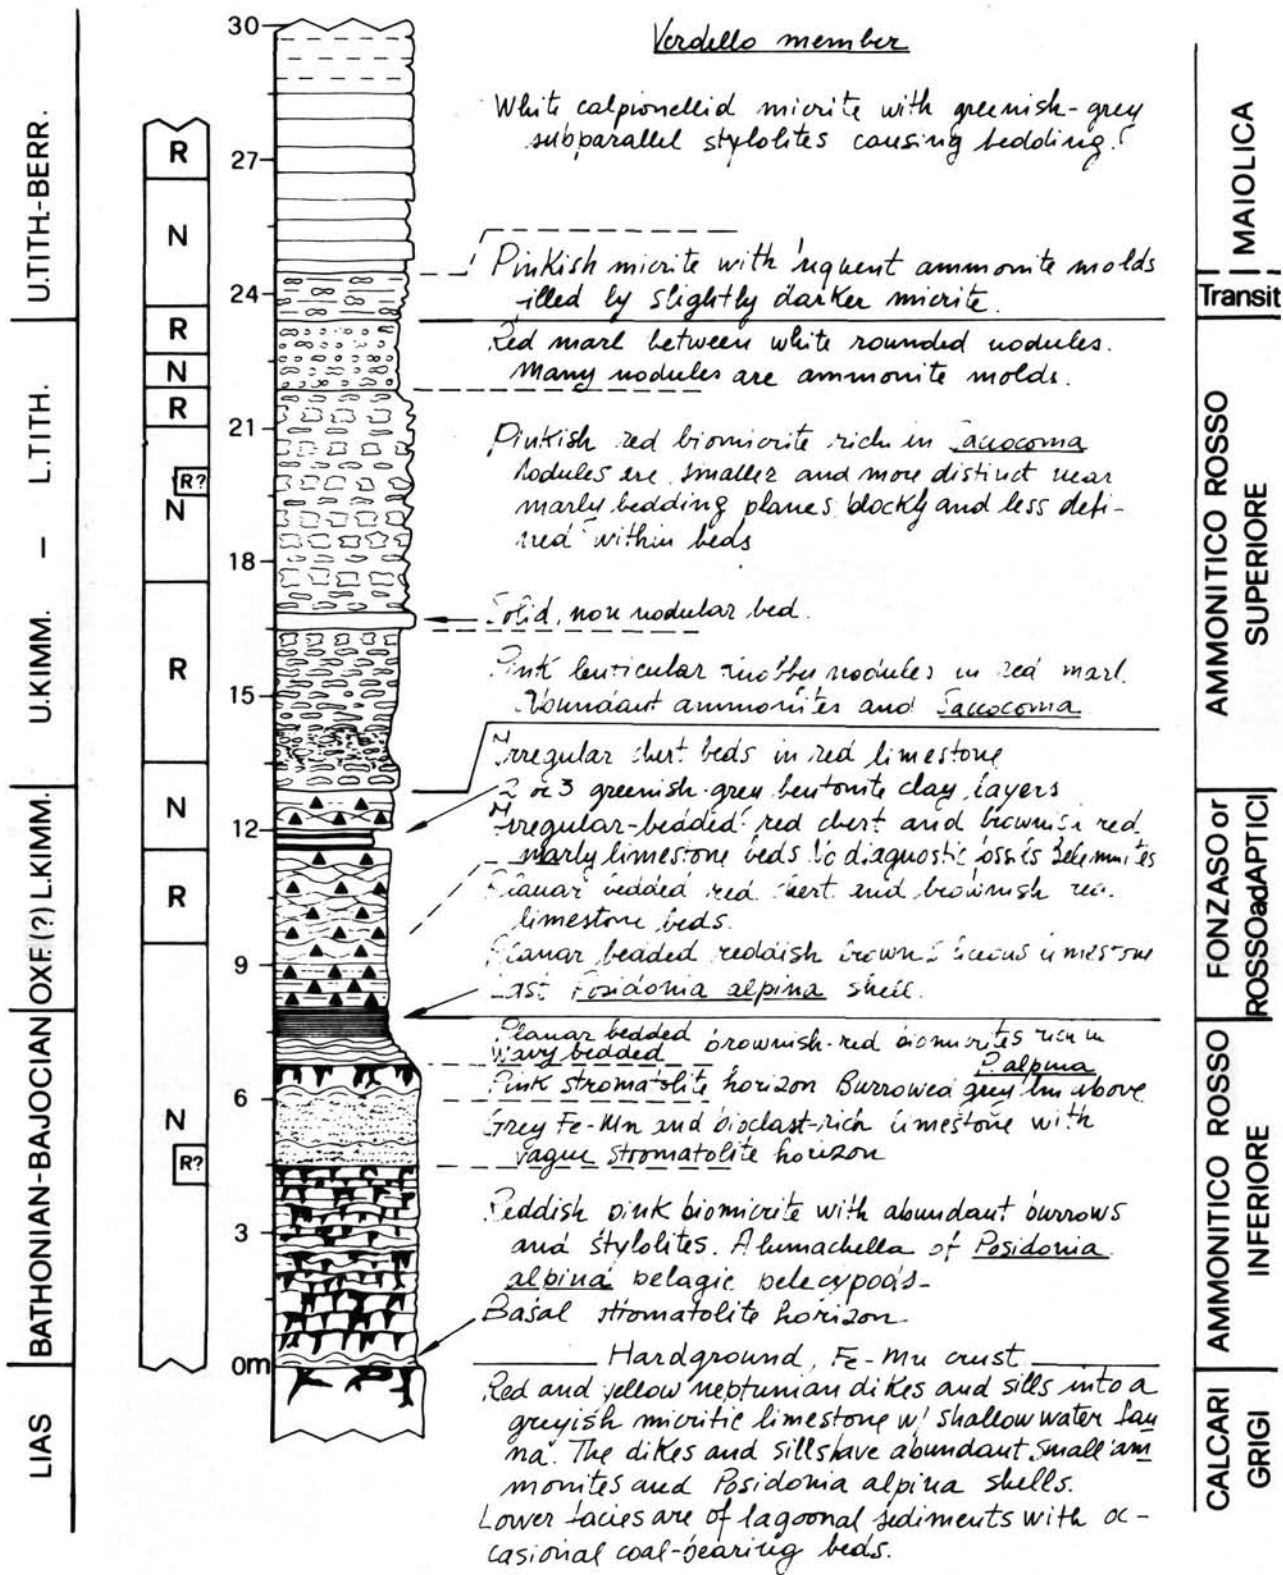 30
Verdello member
White calpionellid micrite with greenish-grey
subparallel stylolites causing bedding.
27
24
21
18
15
12
9
6
3
0m
U.TITH.-BERR.
L.TITH.
—
U.KIMM.
OXF.(?) L.KIMM.
BATHONIAN-BAJOCIAN
LIAS
R
N
R
N
R
R?
N
R
N
R
N
R?
Pinkish micrite with ammonite molds
illed by slightly darker micrite.
Red marl between white rounded nodules.
Many nodules are ammonite molds.
Pinkish red biomicrite rich in Saccocoma
Nodules are smaller and more distinct near
marly bedding planes blocky and less defi-
ned within beds
Solid, non nodular bed.
Pink lenticular knobby nodules in red marl.
Abundant ammonites and Saccocoma
Irregular chert beds in red limestone
2 or 3 greenish-grey bentonite clay layers
Irregular-bedded red chert and brownish red
marly limestone beds No diagnostic fossils Belemnites
Planar bedded red chert and brownish red
limestone beds.
Planar bedded reddish brown limestone
Last Posidonia alpina shell.
Planar bedded
Wavy bedded brownish-red biomicrites rich in
P. alpina
Pink stromatolite horizon Burrowed grey lm above
Grey Fe-Mn and bioclast-rich limestone with
vague stromatolite horizon
Reddish pink biomicrite with abundant burrows
and stylolites. A lumachella of Posidonia
alpina pelagic pelecypods-
Basal stromatolite horizon.
Hardground, Fe-Mn crust
Red and yellow neptunian dikes and sills into a
greyish micritic limestone w/ shallow water fau
na. The dikes and sills have abundant small am
monites and Posidonia alpina shells.
Lower facies are of lagoonal sediments with oc-
casional coal-bearing beds.
MAIOLICA
Transit
AMMONITICO ROSSO
SUPERIORE
FONZASO or
ROSSOadAPTICI
AMMONITICO ROSSO
INFERIORE
CALCARI
GRIGI